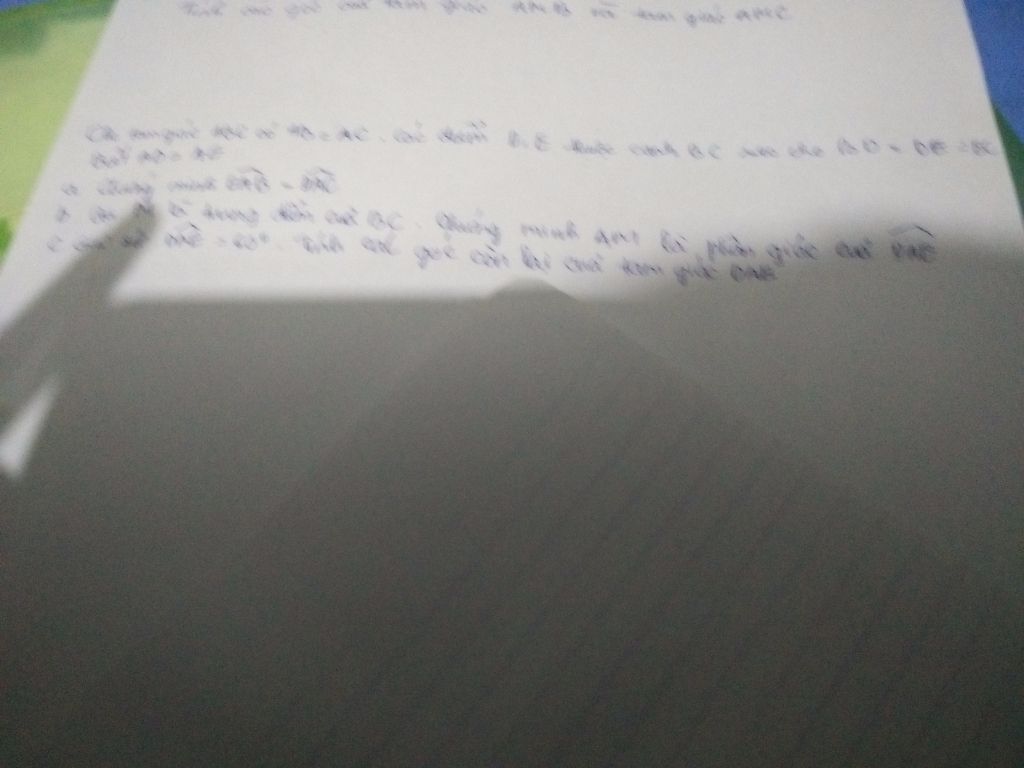 Tính các góc của tam giác AMB và tam giác AMC
Cho tam giác ABC có AB = AC. Các điểm D, E thuộc cạnh BC sao cho BD = DE = EC
Biết AD = AE
a Chứng minh EAB = DAC
b Gọi M là trung điểm của BC. Chứng minh AM là phân giác của DAE
c Giả sử DAE = 60°. Tính các góc còn lại của tam giác DAE